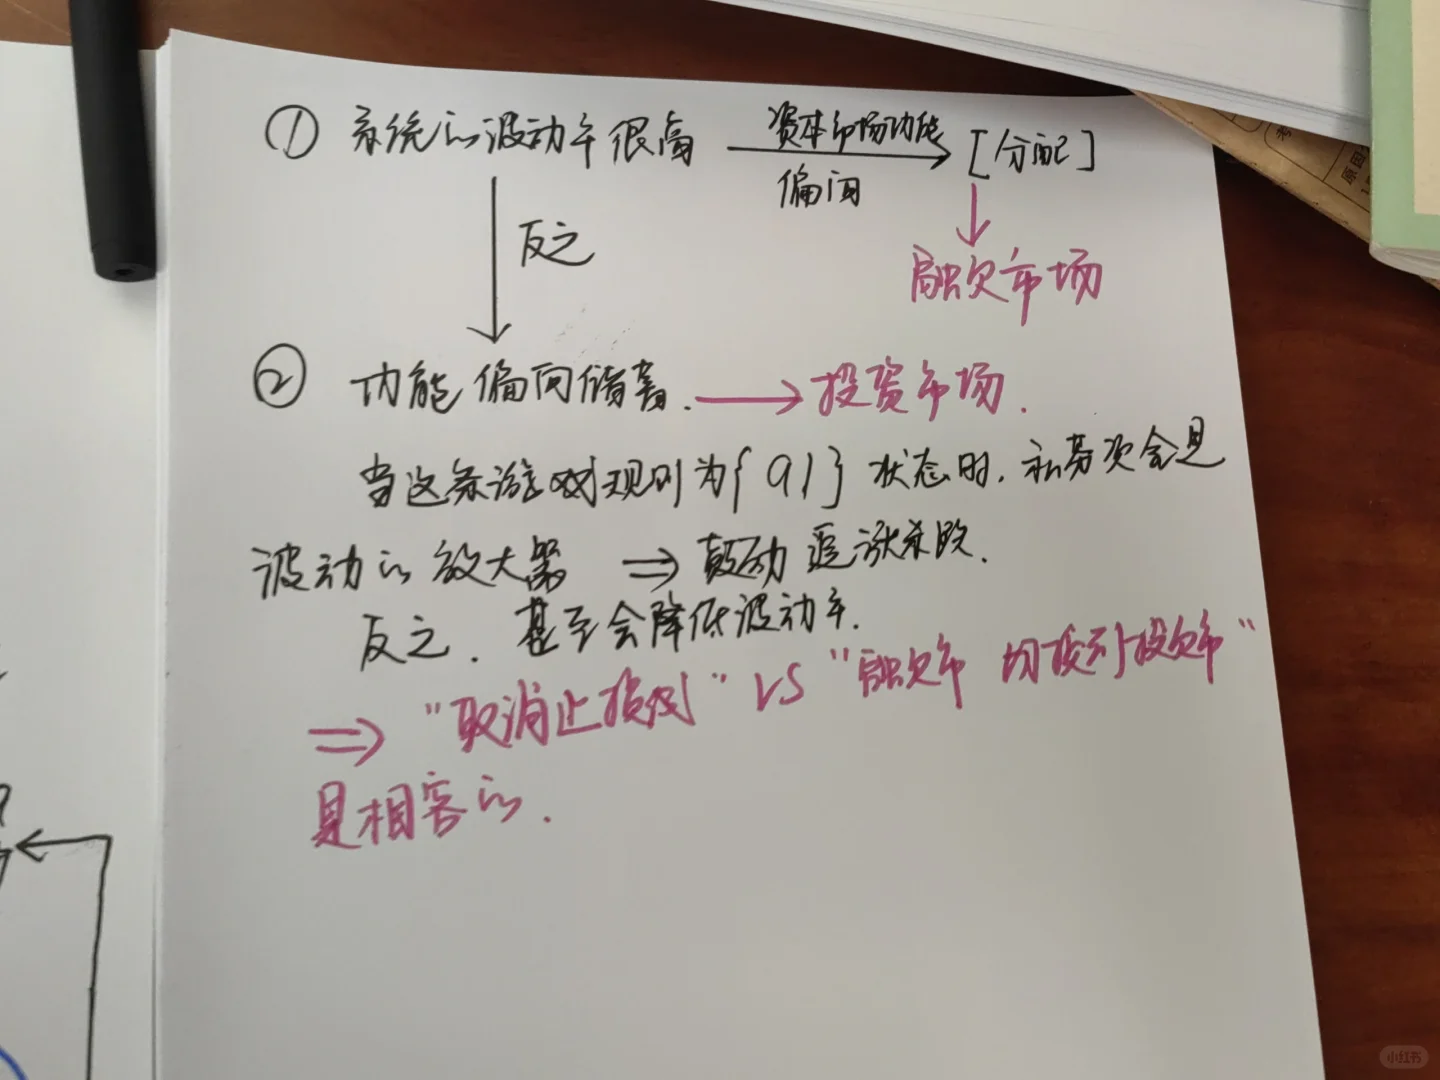 ① 系统的波动率很高 资本市场功能 偏向 [分配]
反之
融资市场
② 功能偏向储蓄. 投资市场.
当这条游戏规则为{01}状态时,私募资金会是
波动的放大器 ⇒ 鼓动追涨杀跌.
反之.甚至会降低波动率.
⇒ "取消止损线" VS "融资市 切换到投资市"
是相容的.
原因
小红书